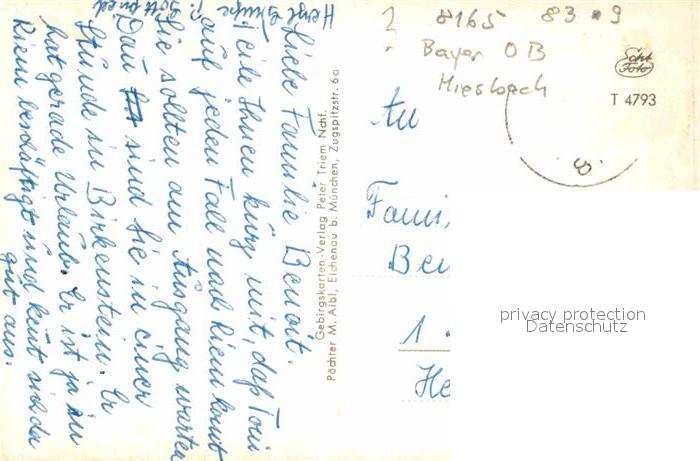 Liebe Familie Benoit.
Teile Ihnen kurz mit, daß Toni
auf jeden Fall nach Riem kommt
Sie sollten am Ausgang warten
Dann sind Sie in einer
Stunde in Birkenstein. Er
hat gerade Urlaub. Er ist ja in
Riem beschäftigt und kennt sich da
gut aus.
Herzl. Grüße
Gebirgskarten-Verlag Peter Triem Nchf.
Pächter M. Aibl, Eichenau b. München, Zugspitzstr. 6a
8165 83 9
Bayer OB
Miesbach
Echt
Foto
T 4793
An
Fami
Ben
1
He
privacy protection
Datenschutz